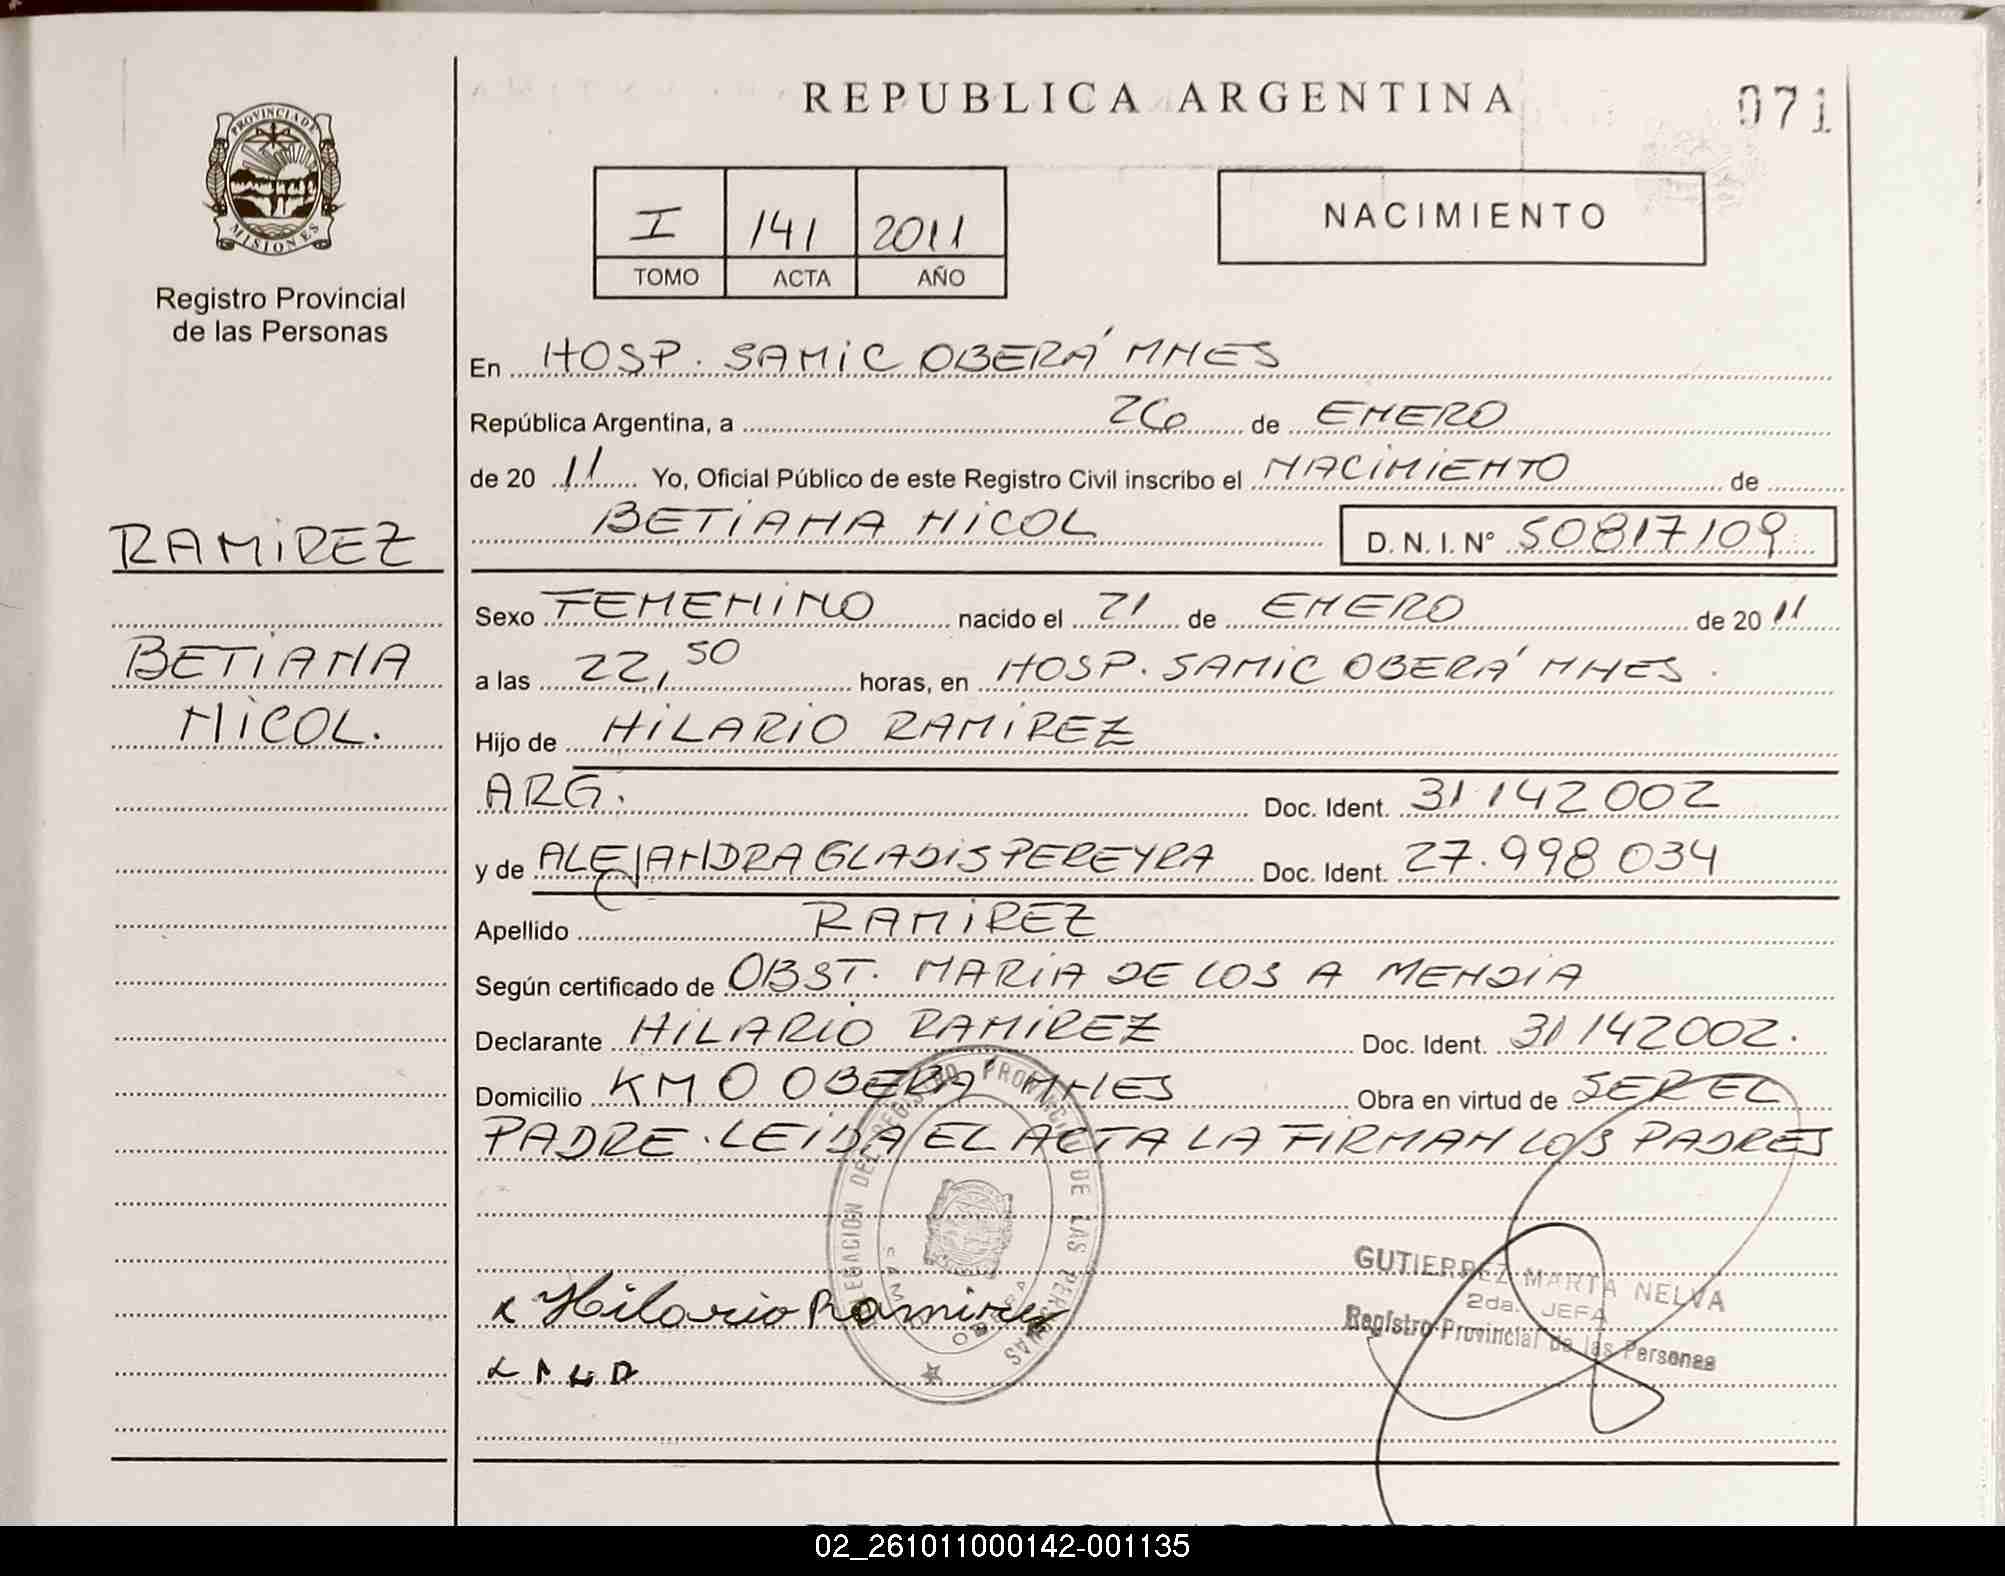 REPUBLICA ARGENTINA
071
PROVINCIA DE
MISIONES
Registro Provincial
de las Personas
I 141 2011
TOMO ACTA AÑO
NACIMIENTO
En HOSP. SAMIC OBERÁ MNES
República Argentina, a 26 de ENERO
de 20 11 Yo, Oficial Público de este Registro Civil inscribo el NACIMIENTO de
BETIANA NICOL D. N. I. N° 50817109
RAMIREZ
BETIANA
NICOL.
Sexo FEMENINO nacido el 21 de ENERO de 20 11
a las 22,50 horas, en HOSP. SAMIC OBERÁ MNES.
Hijo de HILARIO RAMIREZ
ARG. Doc. Ident. 31142002
y de ALEJANDRA GLADIS PEREYRA Doc. Ident. 27.998034
Apellido RAMIREZ
Según certificado de OBST. MARIA DE LOS A MENDIA
Declarante HILARIO RAMIREZ Doc. Ident. 31142002.
Domicilio KM 0 OBERÁ MNES Obra en virtud de SER EL
PADRE. LEIDA EL ACTA LA FIRMAN LOS PADRES
DELEGACION DEL REGISTRO PROVINCIAL DE LAS PERSONAS
OBERA
x Hilario Ramirez
GUTIERREZ MARTA NELVA
2da. JEFA
Registro Provincial de las Personas
02_261011000142-001135